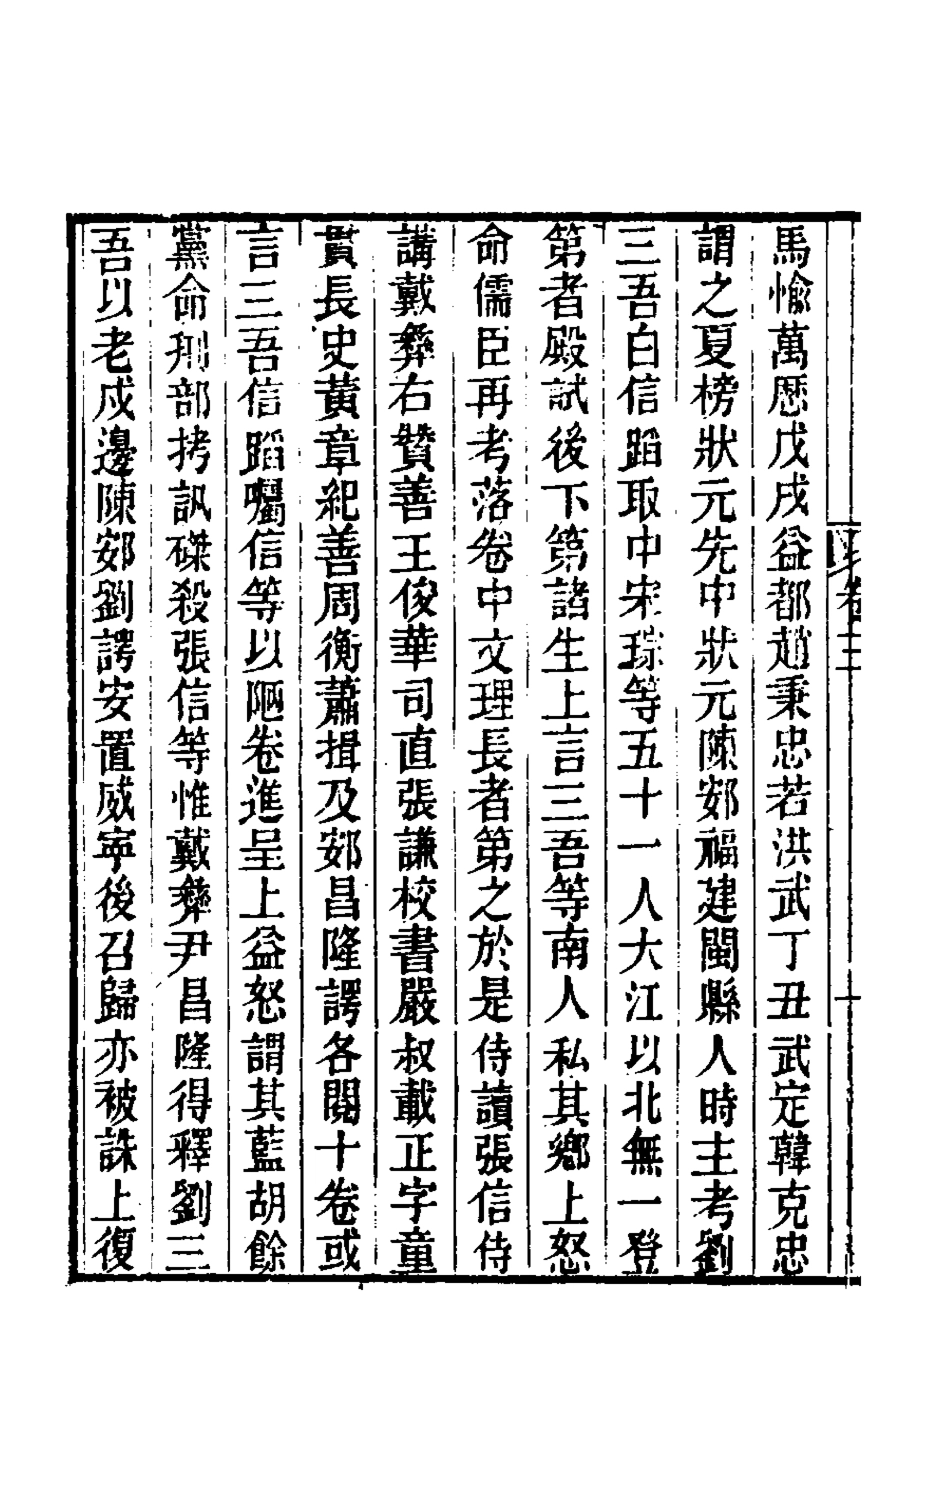 馬愉萬厯戊戌益都趙秉忠若洪武丁丑武定韓克忠
謂之夏榜狀元先中狀元陳䢿福建閩縣人時主考劉
三吾白信蹈取中宋琮等五十一人大江以北無一登
第者殿試後下第諸生上言三吾等南人私其鄉上怒
命儒臣再考落卷中文理長者第之於是侍讀張信侍
講戴彝右贊善王俊華司直張謙校書嚴叔載正字童
貫長史黃章紀善周衡蕭揖及䢿昌隆諤各閱十卷或
言三吾信蹈囑信等以陋卷進呈上益怒謂其藍胡餘
黨命刑部拷訊磔殺張信等惟戴彝尹昌隆得釋劉三
吾以老戍邊陳䢿劉諤安置威寧後召歸亦被誅上復
卷三
十